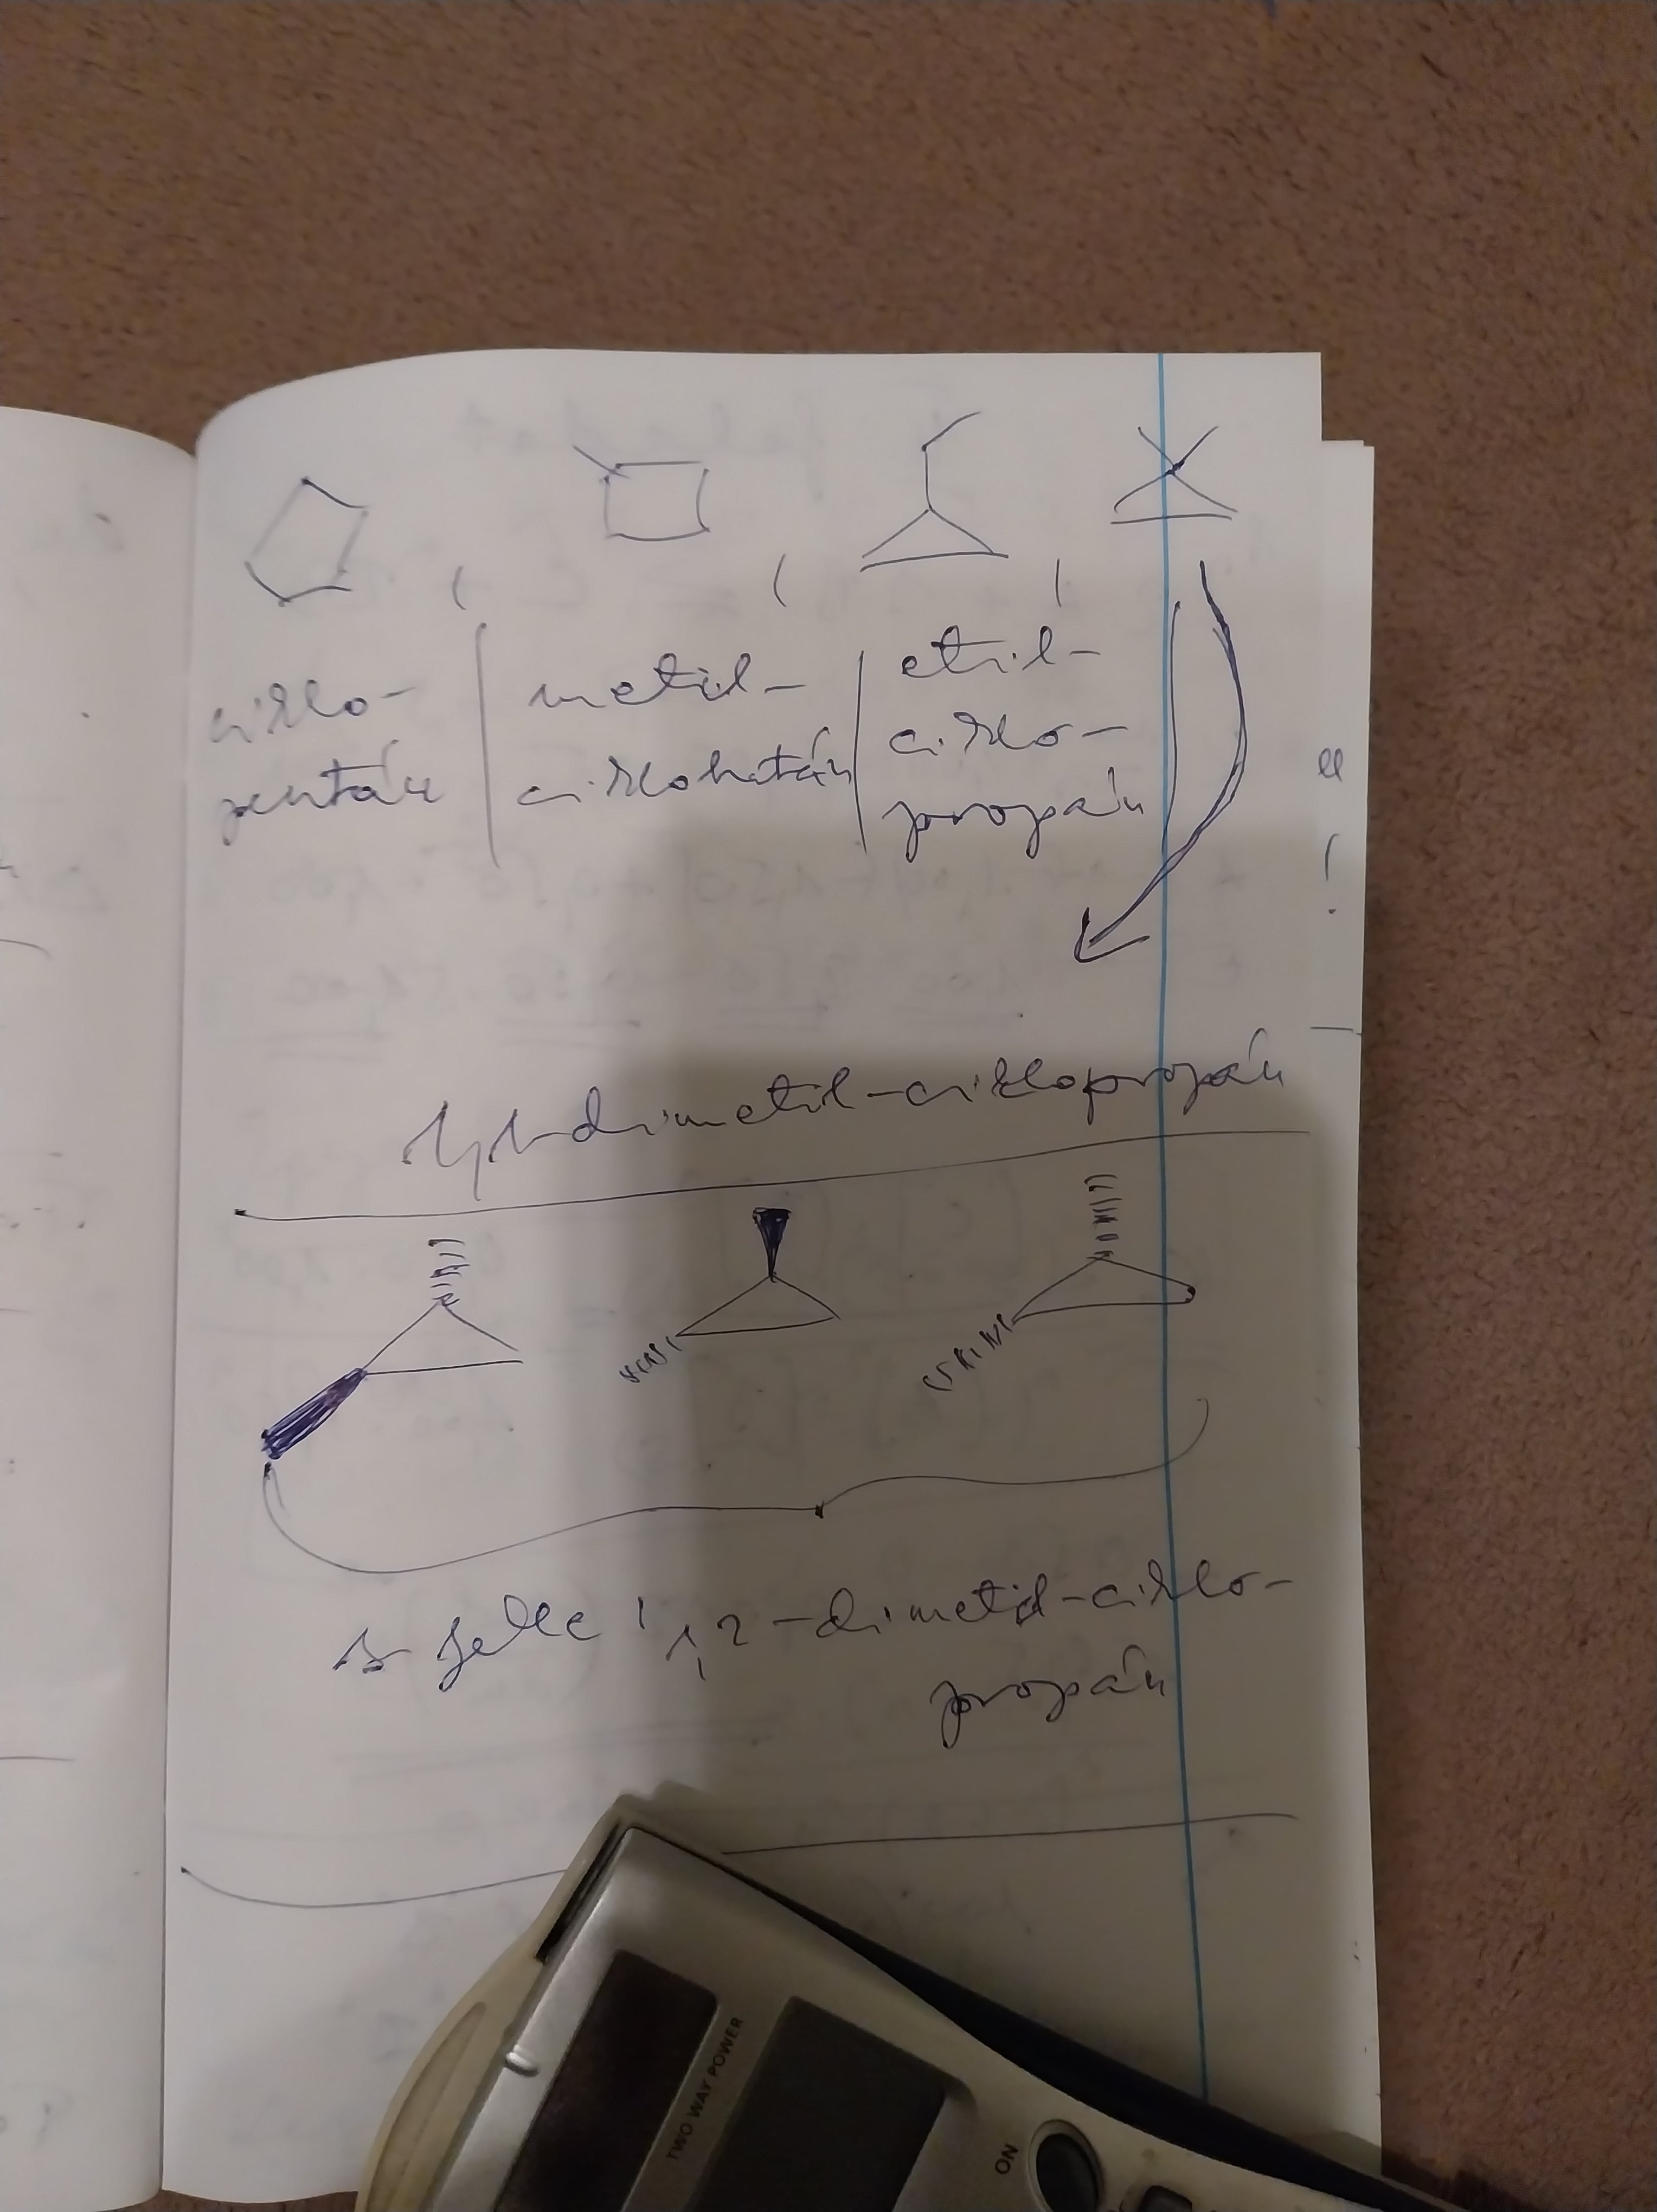 ciklo-
pentán
metil-
ciklobután
etil-
ciklo-
propán
1,1-dimetil-ciklopropán
féle 1,2-dimetil-ciklo-
propán
TWO WAY POWER
ON